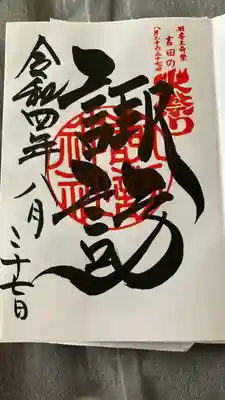 日本三奇祭
吉田の
火祭り
八月二十六、二十七日
諏訪
令和四年八月二十七日